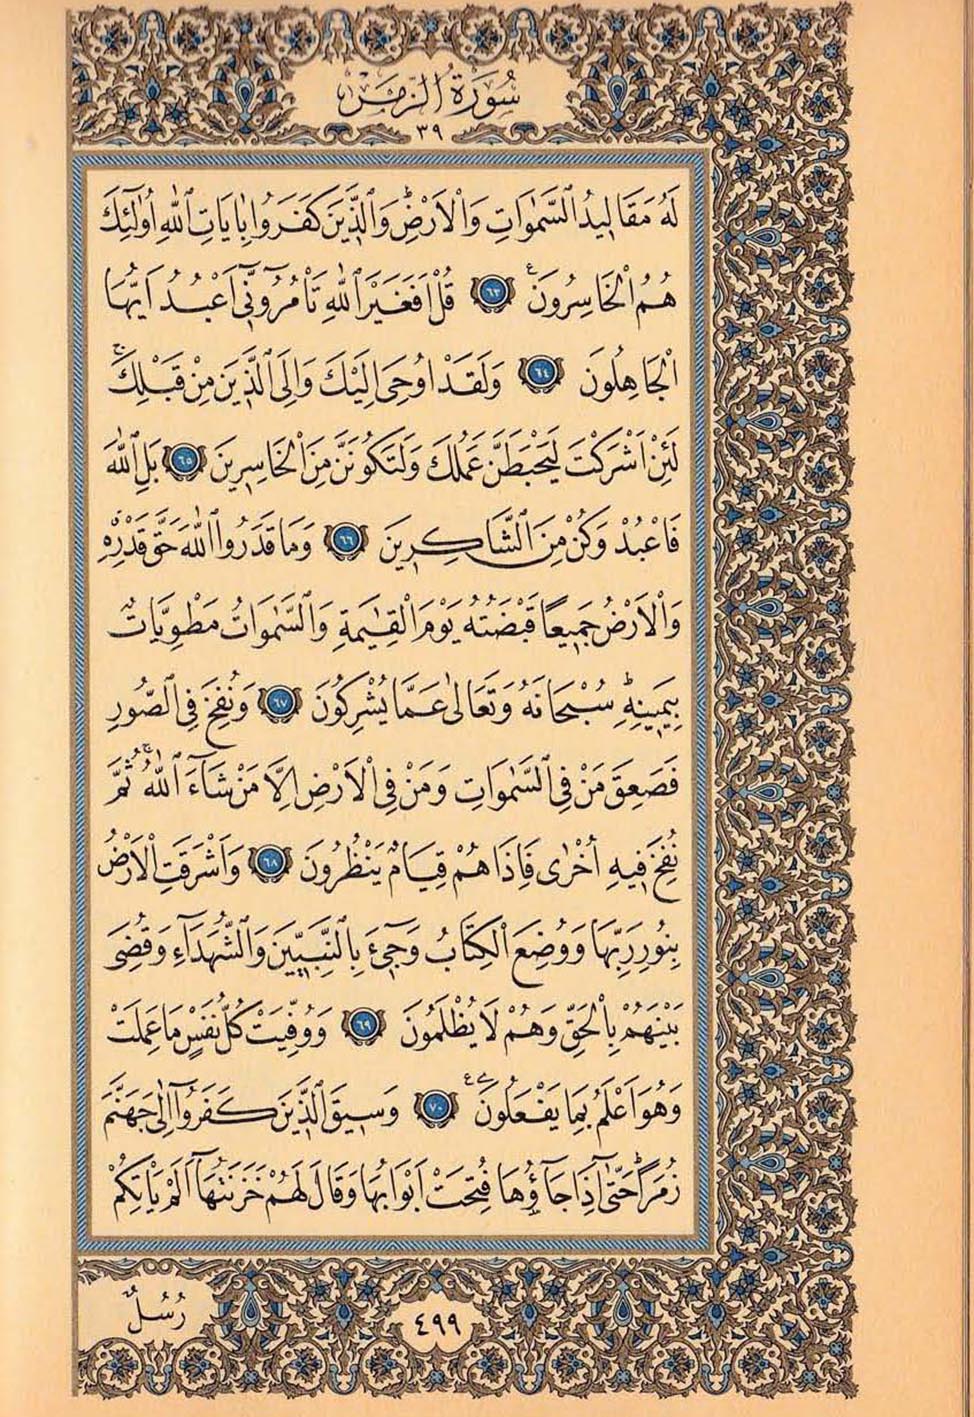 سُورَةُ الزُّمَرِ
٣٩
لَهُ مَقَالِيدُ السَّمٰوَاتِ وَالْاَرْضِۜ وَالَّذِينَ كَفَرُوا بِاٰيَاتِ اللّٰهِ اُو۬لٰٓئِكَ
هُمُ الْخَاسِرُونَ۟ ﴿٦٣﴾ قُلْ اَفَغَيْرَ اللّٰهِ تَأْمُرُٓونّ۪ٓي اَعْبُدُ اَيُّهَا
الْجَاهِلُونَ ﴿٦٤﴾ وَلَقَدْ اُو۫حِيَ اِلَيْكَ وَاِلَى الَّذ۪ينَ مِنْ قَبْلِكَۚ
لَئِنْ اَشْرَكْتَ لَيَحْبَطَنَّ عَمَلُكَ وَلَتَكُونَنَّ مِنَ الْخَاسِر۪ينَ ﴿٦٥﴾ بَلِ اللّٰهَ
فَاعْبُدْ وَكُنْ مِنَ الشَّاكِر۪ينَ ﴿٦٦﴾ وَمَا قَدَرُوا اللّٰهَ حَقَّ قَدْرِه۪ۗ
وَالْاَرْضُ جَم۪يعًا قَبْضَتُهُ يَوْمَ الْقِيٰمَةِ وَالسَّمٰوَاتُ مَطْوِيَّاتٌ
بِيَم۪ينِه۪ۜ سُبْحَانَهُ وَتَعَالٰى عَمَّا يُشْرِكُونَ ﴿٦٧﴾ وَنُفِخَ فِي الصُّورِ
فَصَعِقَ مَنْ فِي السَّمٰوَاتِ وَمَنْ فِي الْاَرْضِ اِلَّا مَنْ شَٓاءَ اللّٰهُۜ ثُمَّ
نُفِخَ ف۪يهِ اُخْرٰى فَاِذَا هُمْ قِيَامٌ يَنْظُرُونَ ﴿٦٨﴾ وَاَشْرَقَتِ الْاَرْضُ
بِنُورِ رَبِّهَا وَوُضِعَ الْكِتَابُ وَج۪ٓيءَ بِالنَّبِيّ۪نَ وَالشُّهَدَٓاءِ وَقُضِيَ
بَيْنَهُمْ بِالْحَقِّ وَهُمْ لَا يُظْلَمُونَ ﴿٦٩﴾ وَوُفِّيَتْ كُلُّ نَفْسٍ مَا عَمِلَتْ
وَهُوَ اَعْلَمُ بِمَا يَفْعَلُونَ۟ ﴿٧٠﴾ وَس۪يقَ الَّذ۪ينَ كَفَرُٓوا اِلٰى جَهَنَّمَ
زُمَرًاۜ حَتّٰٓى اِذَا جَٓاؤُ۫هَا فُتِحَتْ اَبْوَابُهَا وَقَالَ لَهُمْ خَزَنَتُهَٓا اَلَمْ يَأْتِكُمْ
رُسُلٌ
٤٩٩